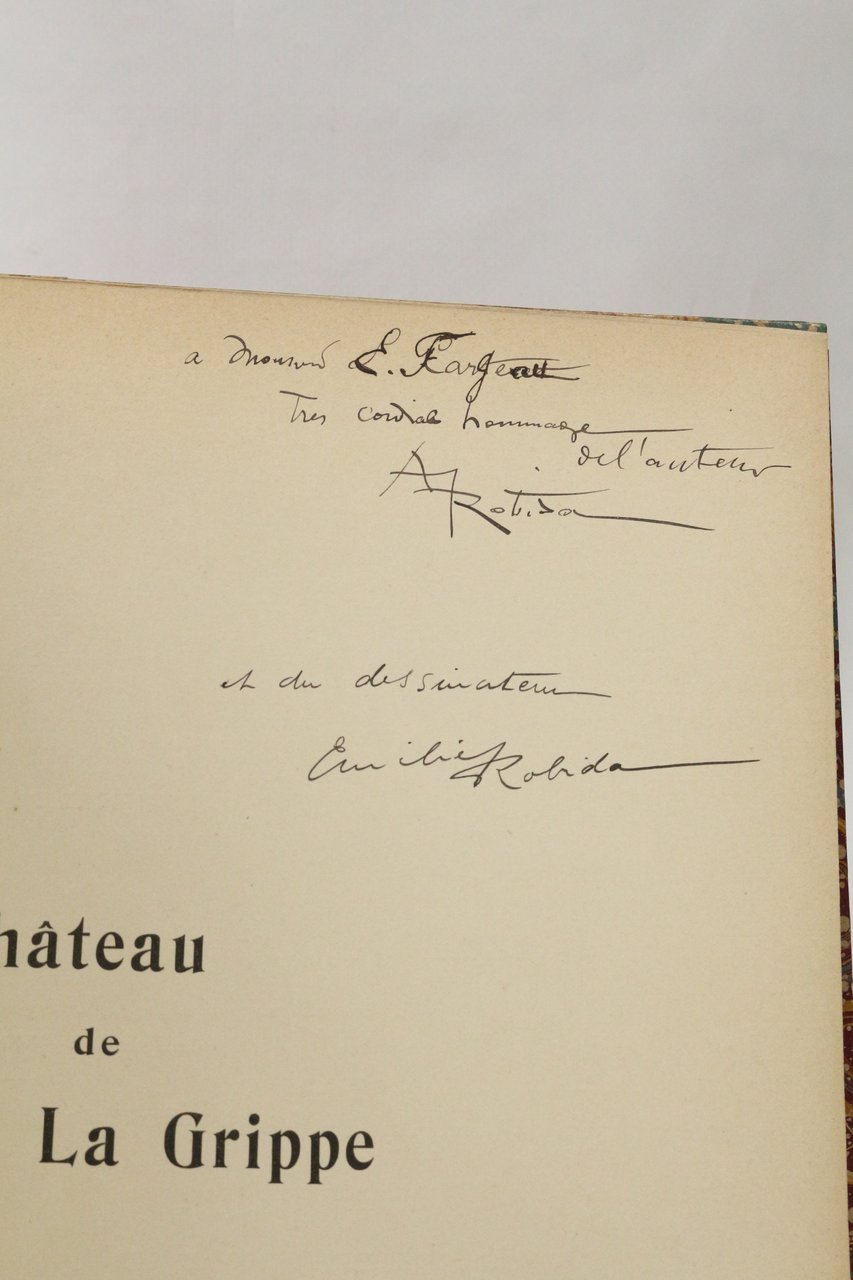 a Monsieur E. Fargeau
Très cordial hommage
de l'auteur
A Robida
et du dessinateur
Emilie Robida
hâteau
de
La Grippe